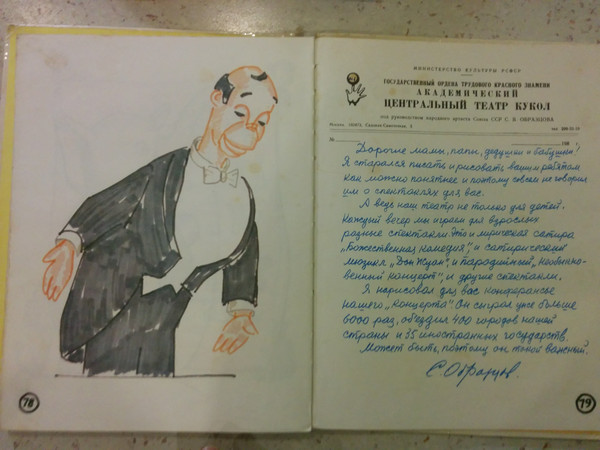 МИНИСТЕРСТВО КУЛЬТУРЫ РСФСР
ГОСУДАРСТВЕННЫЙ ОРДЕНА ТРУДОВОГО КРАСНОГО ЗНАМЕНИ
АКАДЕМИЧЕСКИЙ
ЦЕНТРАЛЬНЫЙ ТЕАТР КУКОЛ
под руководством народного артиста Союза ССР С. В. ОБРАЗЦОВА
Москва, Садовая-Самотечная, 3
№ 198
Дорогие мамы, папы, дедушки и бабушки!
Я старался писать и рисовать вашим ребятам
как можно понятнее и поэтому совсем не говорил
им о спектаклях для вас.
А ведь наш театр не только для детей.
Каждый вечер мы играем для взрослых
разные спектакли. Это и лирическая сатира
„Божественная комедия", и сатирический
мюзикл „Дон Жуан", и пародийный „Необыкно-
венный концерт", и другие спектакли.
Я нарисовал для вас конферансье
нашего „Концерта". Он сыграл уже больше
6000 раз, объездил 400 городов нашей
страны и 35 иностранных государств.
Может быть, поэтому он такой важный.
С Образцов.
78
79